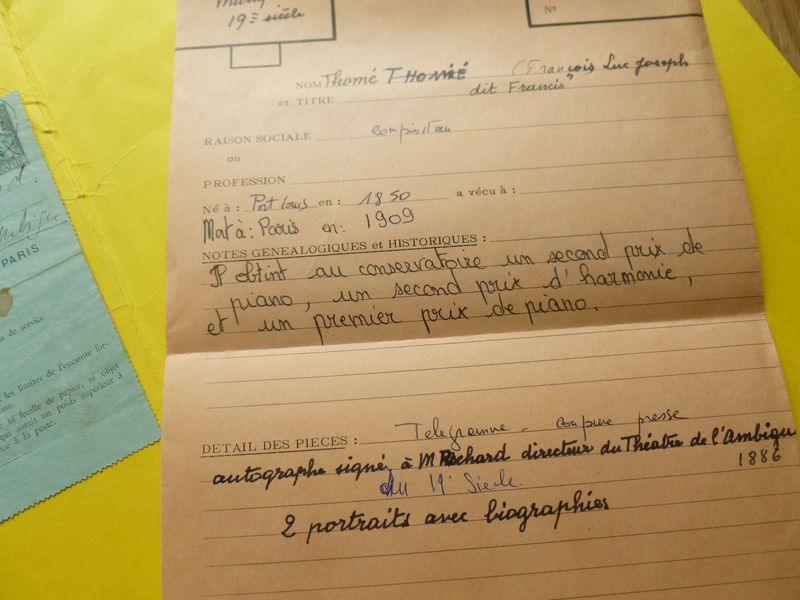 19e siècle
Nº
NOM Thomé THOMÉ (François Luc Joseph
et TITRE dit Francis"
RAISON SOCIALE compositeur
ou
PROFESSION
Né à : Port Louis en : 1850 a vécu à :
Mort à : Paris en : 1909
NOTES GENEALOGIQUES et HISTORIQUES :
Il obtint au conservatoire un second prix de
piano, un second prix d'harmonie,
et un premier prix de piano.
DETAIL DES PIECES : Telegramme - coupure presse
autographe signé, à M Rochard directeur du Théatre de l'Ambigu
1886
du 19e Siecle.
2 portraits avec biographies
PARIS
s de service.
les limites de l'enceinte for-
ni feuille de papier, ni objet
qui aurait un poids supérieur à
à la poste.